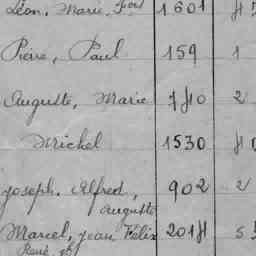 Léon, Marie, 1601
Pierre, Paul 159 1
Auguste, Marie 740 2
Michel 1530 4
Joseph, Alfred, 902 2
Auguste
Marcel, Jean Félix 2014 5
René